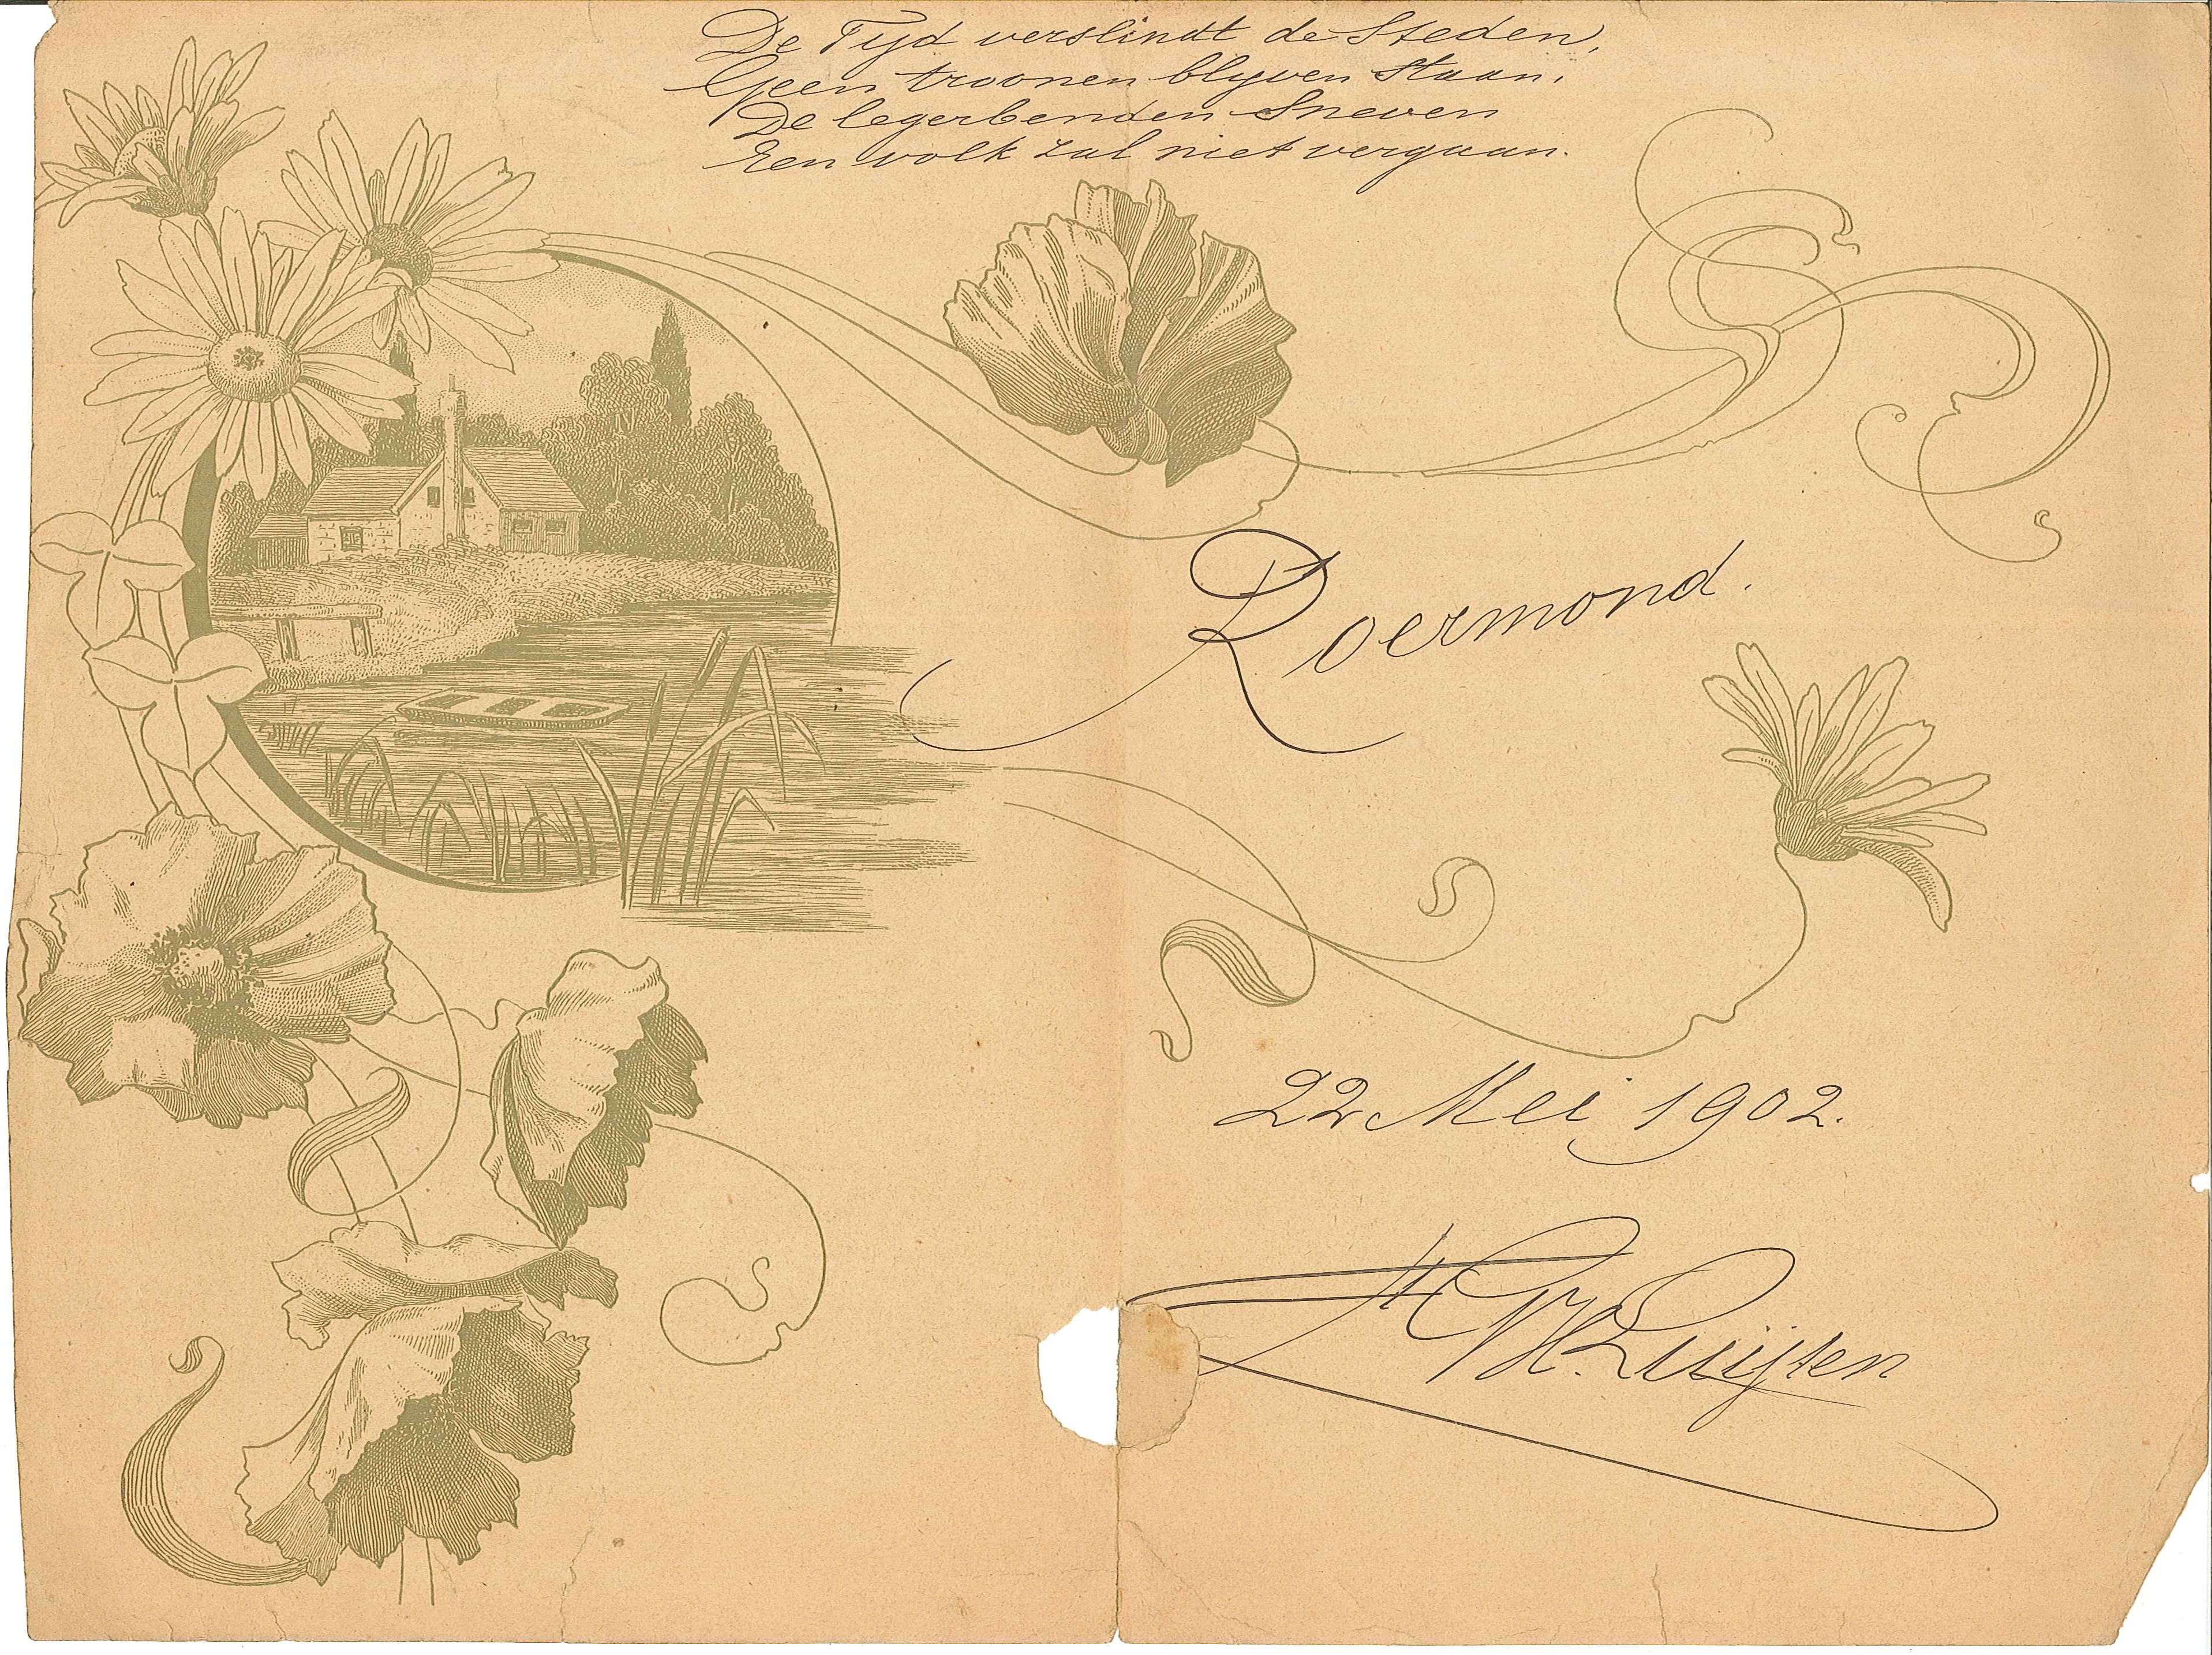 De Tijd verslindt de Steden,
Geen troonen blijven staan.
De legerbenden Sneven
Een volk zal niet vergaan.
Roermond.
22 Mei 1902.
Luijten